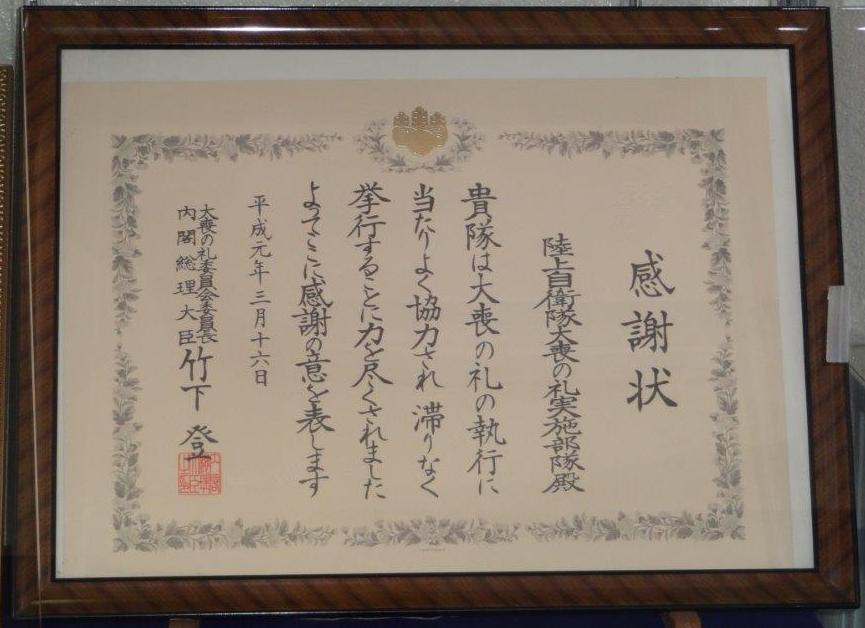 感謝状
陸上自衛隊大喪の礼実施部隊殿
貴隊は大喪の礼の執行に
当たりよく協力され滞りなく
挙行することに力を尽くされました
よってここに感謝の意を表します
平成元年三月十六日
大喪の礼委員会委員長
内閣総理大臣 竹下 登